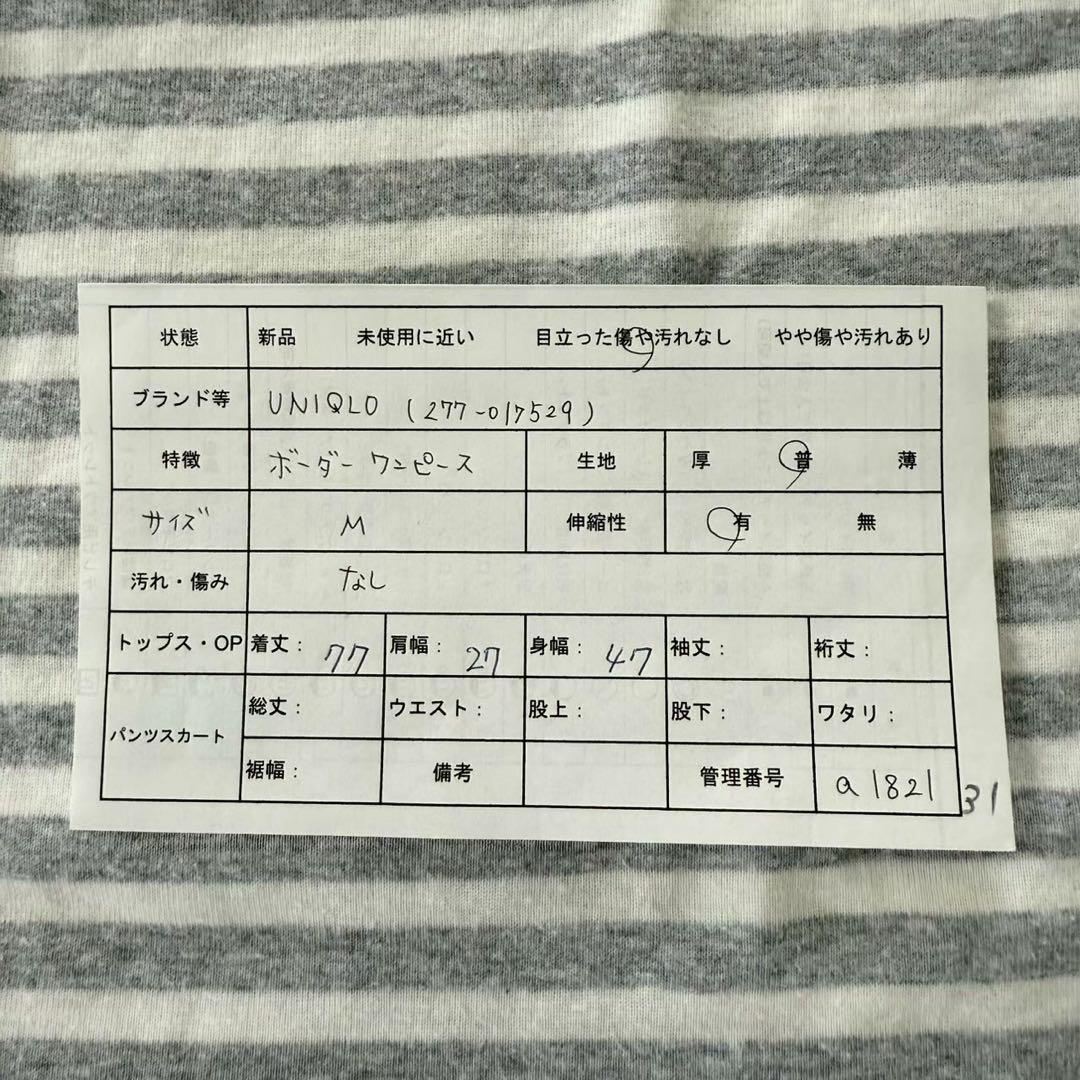 状態 新品 未使用に近い 目立った傷や汚れなし やや傷や汚れあり
ブランド等 UNIQLO (277-017529)
特徴 ボーダー ワンピース 生地 厚 普 薄
サイズ M 伸縮性 有 無
汚れ・傷み なし
トップス・OP 着丈: 77 肩幅: 27 身幅: 47 袖丈: 裄丈:
パンツスカート 総丈: ウエスト: 股上: 股下: ワタリ:
裾幅: 備考 管理番号 a1821 31